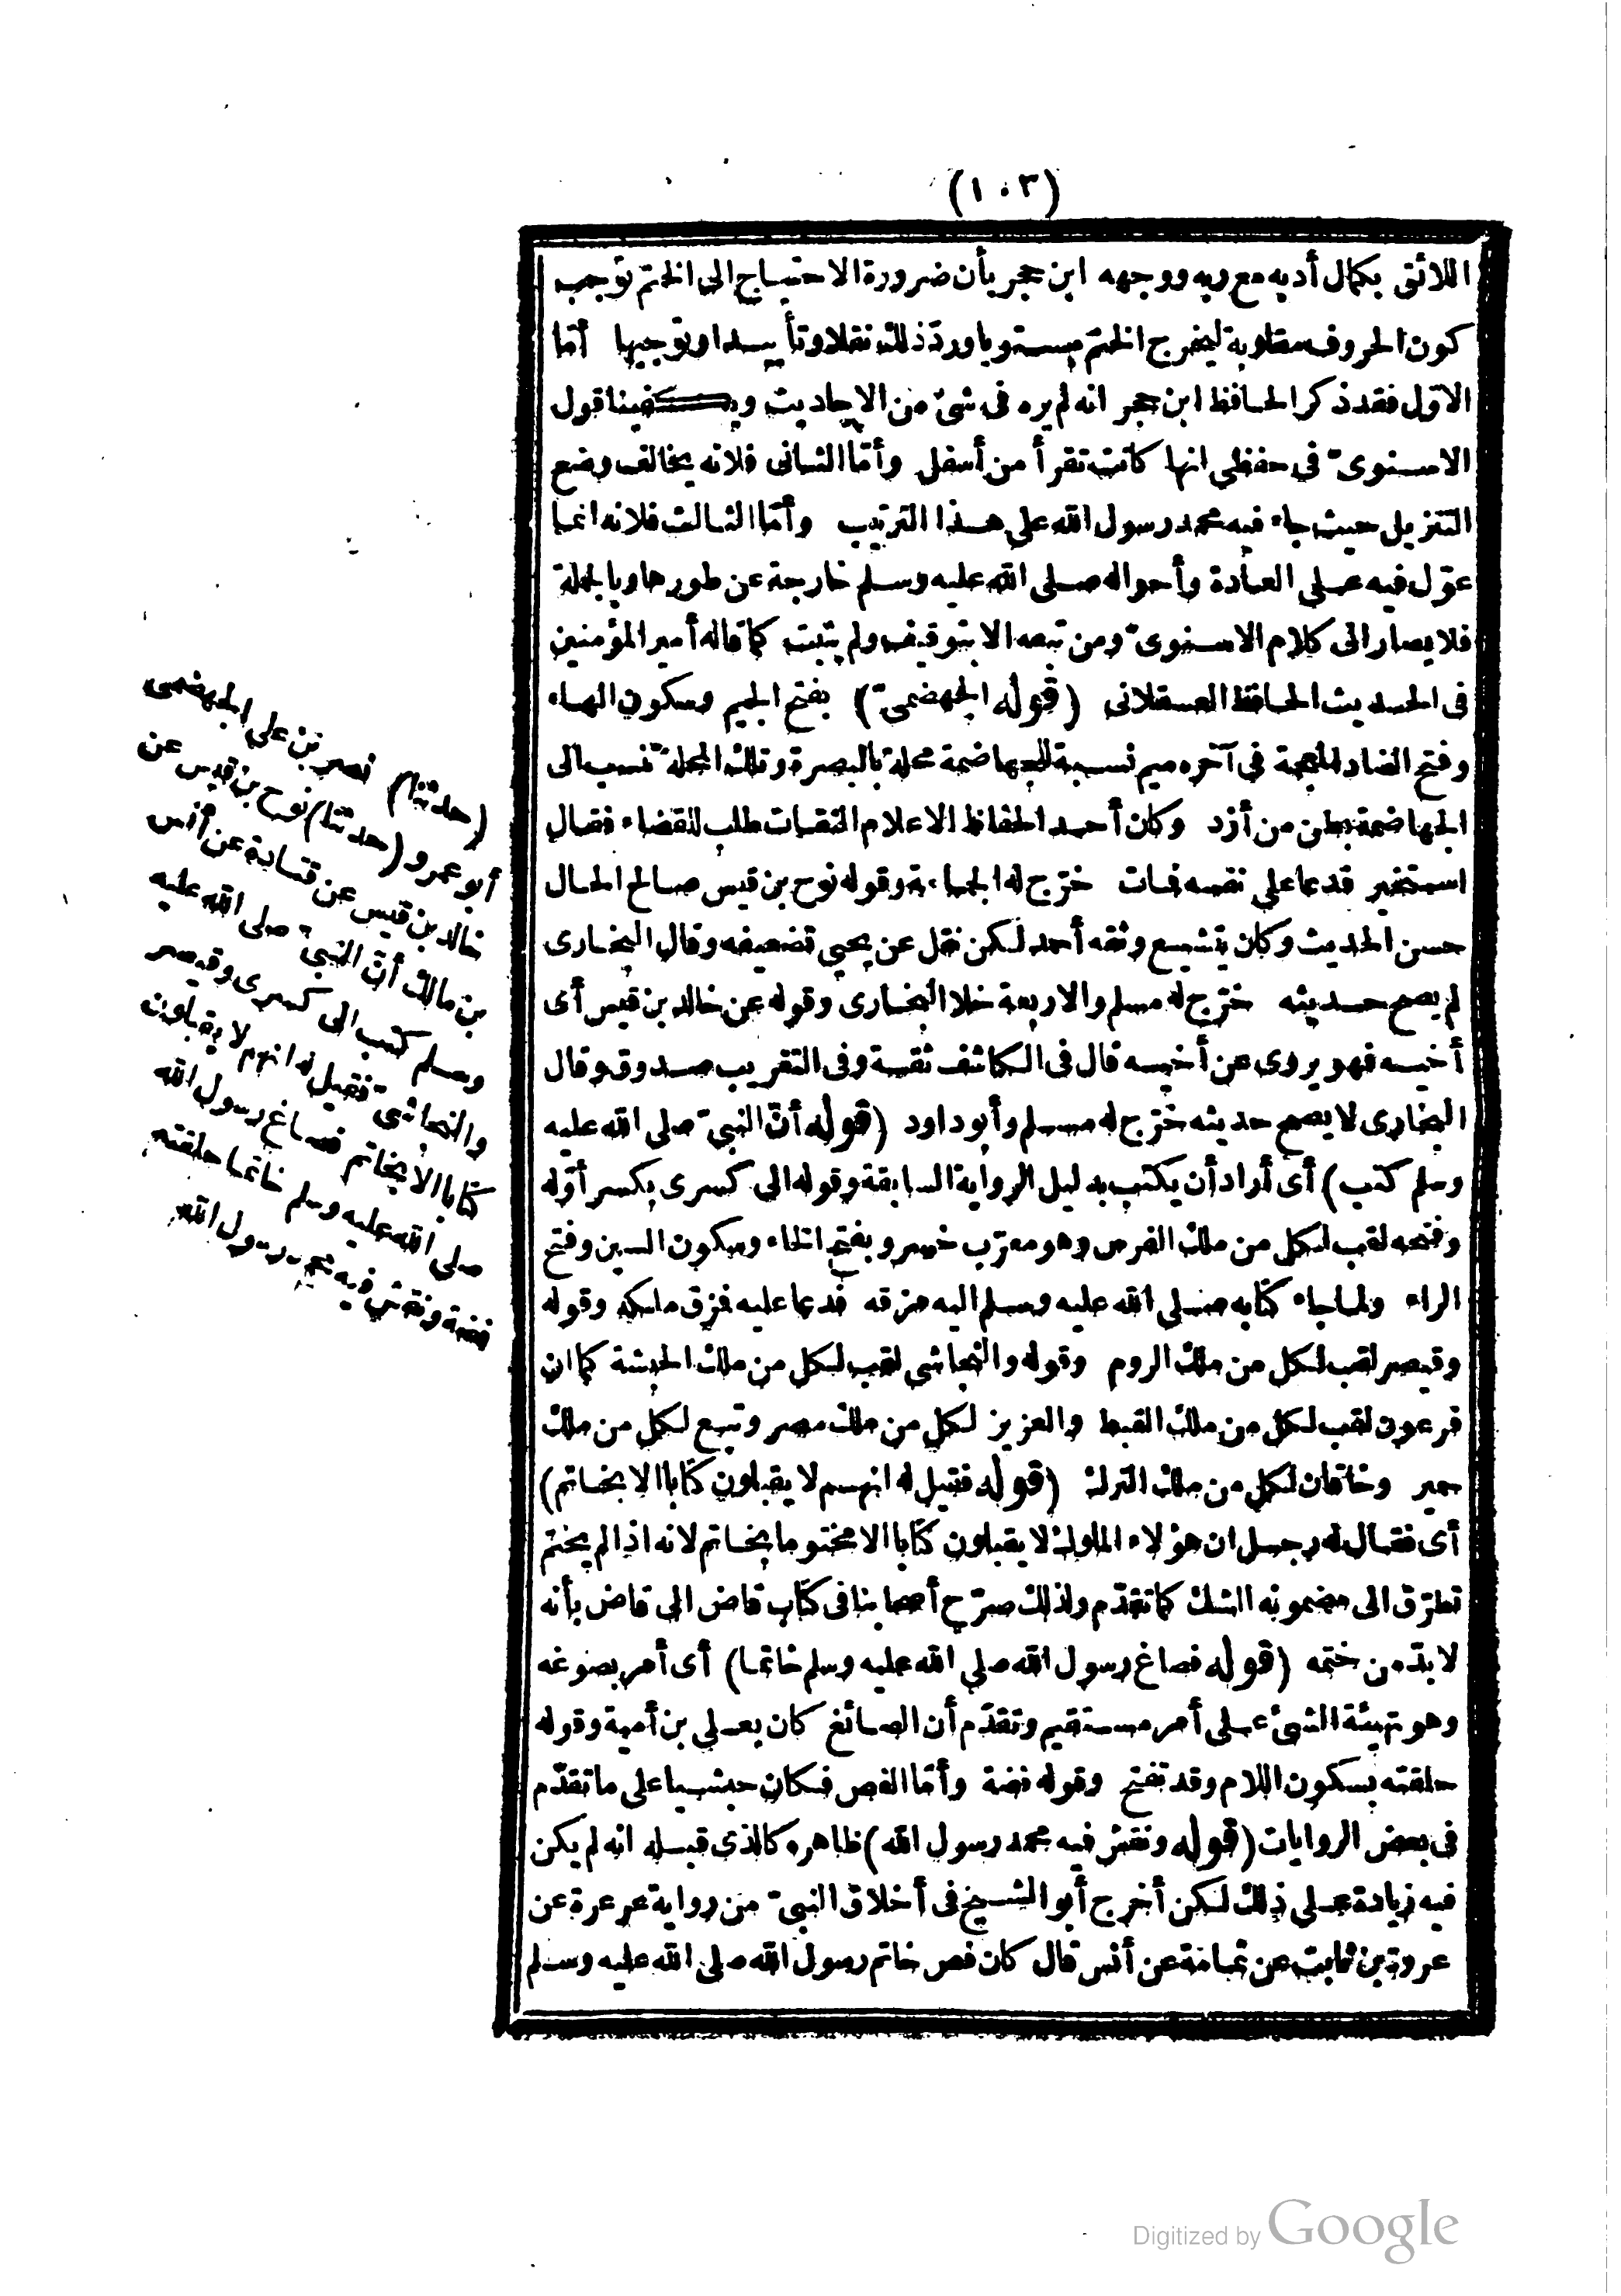 (١٠٣)
اللائق بكمال أدبه مع ربه ووجهه ابن حجر بأن ضرورة الاحتياج الى الختم توجب
كون الحروف مقلوبة ليخرج الختم مستويا ورد ذلك نقلا وتأييدا وتوجيها أمّا
الاوّل فقد ذكر الحافظ ابن حجر انه لم يره فى شئ من الاحاديث ويكفينا قول
الاسنوىّ فى حفظى انها كانت تقرأ من أسفل وأمّا الثانى فلانه يخالف وضع
التنزيل حيث جاء فيه محمد رسول الله على هذا الترتيب وأمّا الثالث فلانه انما
عوّل فيه على العادة وأحواله صلى الله عليه وسلم خارجة عن طورها وبالجملة
فلا يصار الى كلام الاسنوىّ ومن تبعه الا بتوقيف ولم يثبت كما قاله أمير المؤمنين
فى الحديث الحافظ العسقلانى (قوله الجهضمىّ) بفتح الجيم وسكون الهاء
وفتح الضاد المعجمة فى آخره ميم نسبة للجهاضمة محلة بالبصرة وتلك المحلة تنسب الى
الجهاضمة بطن من أزد وكان أحد الحفاظ الاعلام الثقات طلب للقضاء فقال
استخير فدعا على نفسه فمات خرّج له الجماعة وقوله نوح بن قيس صالح الحال
حسن الحديث وكان يتشيع وثقه أحمد لكن نقل عن يحيى تضعيفه وقال البخارى
لم يصح حديثه خرّج له مسلم والاربعة خلا البخارى وقوله عن خالد بن قيس أى
أخيه فهو يروى عن أخيه قال فى الكاشف ثقة وفى التقريب صدوق وقال
البخارى لا يصح حديثه خرّج له مسلم وأبو داود (قوله أنّ النبىّ صلى الله عليه
وسلم كتب) أى أراد أن يكتب بدليل الرواية السابقة وقوله الى كسرى بكسر أوّله
وفتحه لقب لكل من ملك الفرس وهو معرّب خسرو بفتح الخاء وسكون السين وفتح
الراء ولما جاء كتابه صلى الله عليه وسلم اليه مزقه فدعا عليه فمزق ملكه وقوله
وقيصر لقب لكل من ملك الروم وقوله والنجاشى لقب لكل من ملك الحبشة كما ان
فرعون لقب لكل من ملك القبط والعزيز لكل من ملك مصر وتبع لكل من ملك
حمير وخاقان لكل من ملك الترك (قوله فقيل له انهم لا يقبلون كتابا الا بخاتم)
أى فقال له رجل ان هؤلاء الملوك لا يقبلون كتابا الا مختوما بخاتم لانه اذا لم يختم
تطرّق الى مضمونه الشك كما تقدّم ولذلك صرّح أصحابنا فى كتاب قاض الى قاض بأنه
لا بدّ من ختمه (قوله فصاغ رسول الله صلى الله عليه وسلم خاتما) أى أمر بصوغه
وهو تهيئة الشئ على أمر مستقيم وتقدّم أن الصائغ كان يعلى بن أمية وقوله
حلقته بسكون اللام وقد تفتح وقوله فضة وأمّا الفص فكان حبشيا على ما تقدّم
فى بعض الروايات (قوله ونقش فيه محمد رسول الله) ظاهره كالذى قبله انه لم يكن
فيه زيادة على ذلك لكن أخرج أبو الشيخ فى أخلاق النبىّ من رواية عرعرة عن
عروة بن ثابت عن ثمامة عن أنس قال كان فص خاتم رسول الله صلى الله عليه وسلم
(حدّثنا) نصر بن على الجهضمى
أبو عمرو (حدّثنا) نوح بن قيس عن
خالد بن قيس عن قتادة عن أنس
بن مالك أنّ النبىّ صلى الله عليه
وسلم كتب الى كسرى وقيصر
والنجاشىّ فقيل له انهم لا يقبلون
كتابا الا بخاتم فصاغ رسول الله
صلى الله عليه وسلم خاتما حلقته
فضة ونقش فيه محمد رسول الله
Digitized by Google